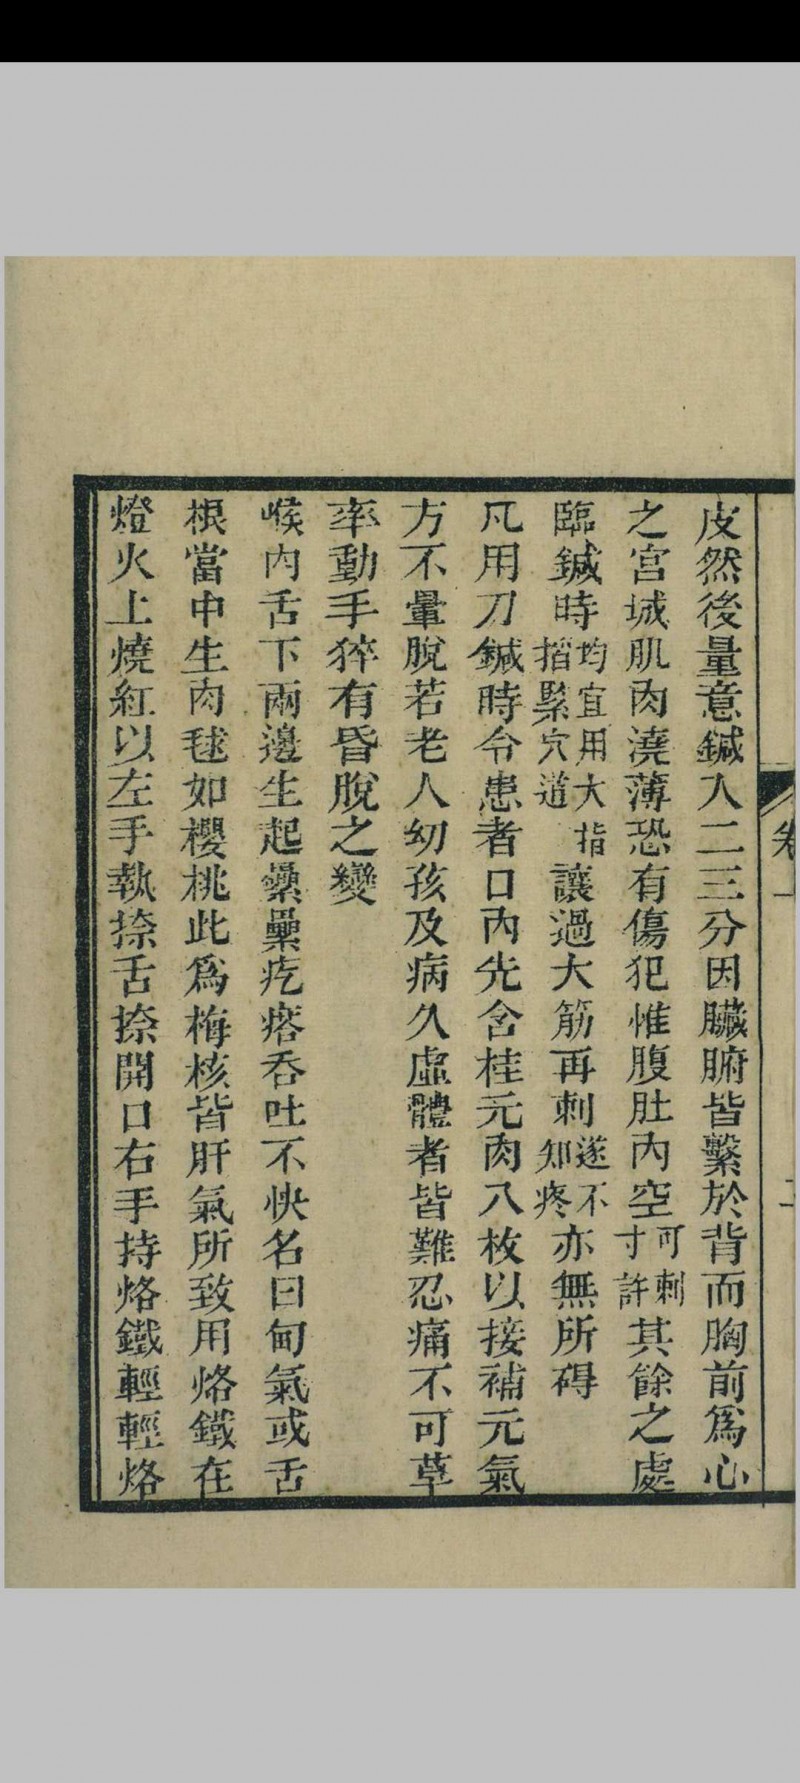 卷一
二
皮然後量意鍼入二三分因臟腑皆繫於背而胸前爲心
之宮城肌肉澆薄恐有傷犯惟腹肚內空可刺寸許其餘之處
臨鍼時均宜用大指搯緊穴道讓過大筋再刺遂不知疼亦無所碍
凡用刀鍼時令患者口內先含桂元肉八枚以接補元氣
方不暈脫若老人幼孩及病久虛體者皆難忍痛不可草
率動手猝有昏脫之變
喉內舌下兩邊生起纍纍疙瘩吞吐不快名曰甸氣或舌
根當中生肉毬如櫻桃此爲梅核皆肝氣所致用烙鐵在
燈火上燒紅以左手執捺舌捺開口右手持烙鐵輕輕烙